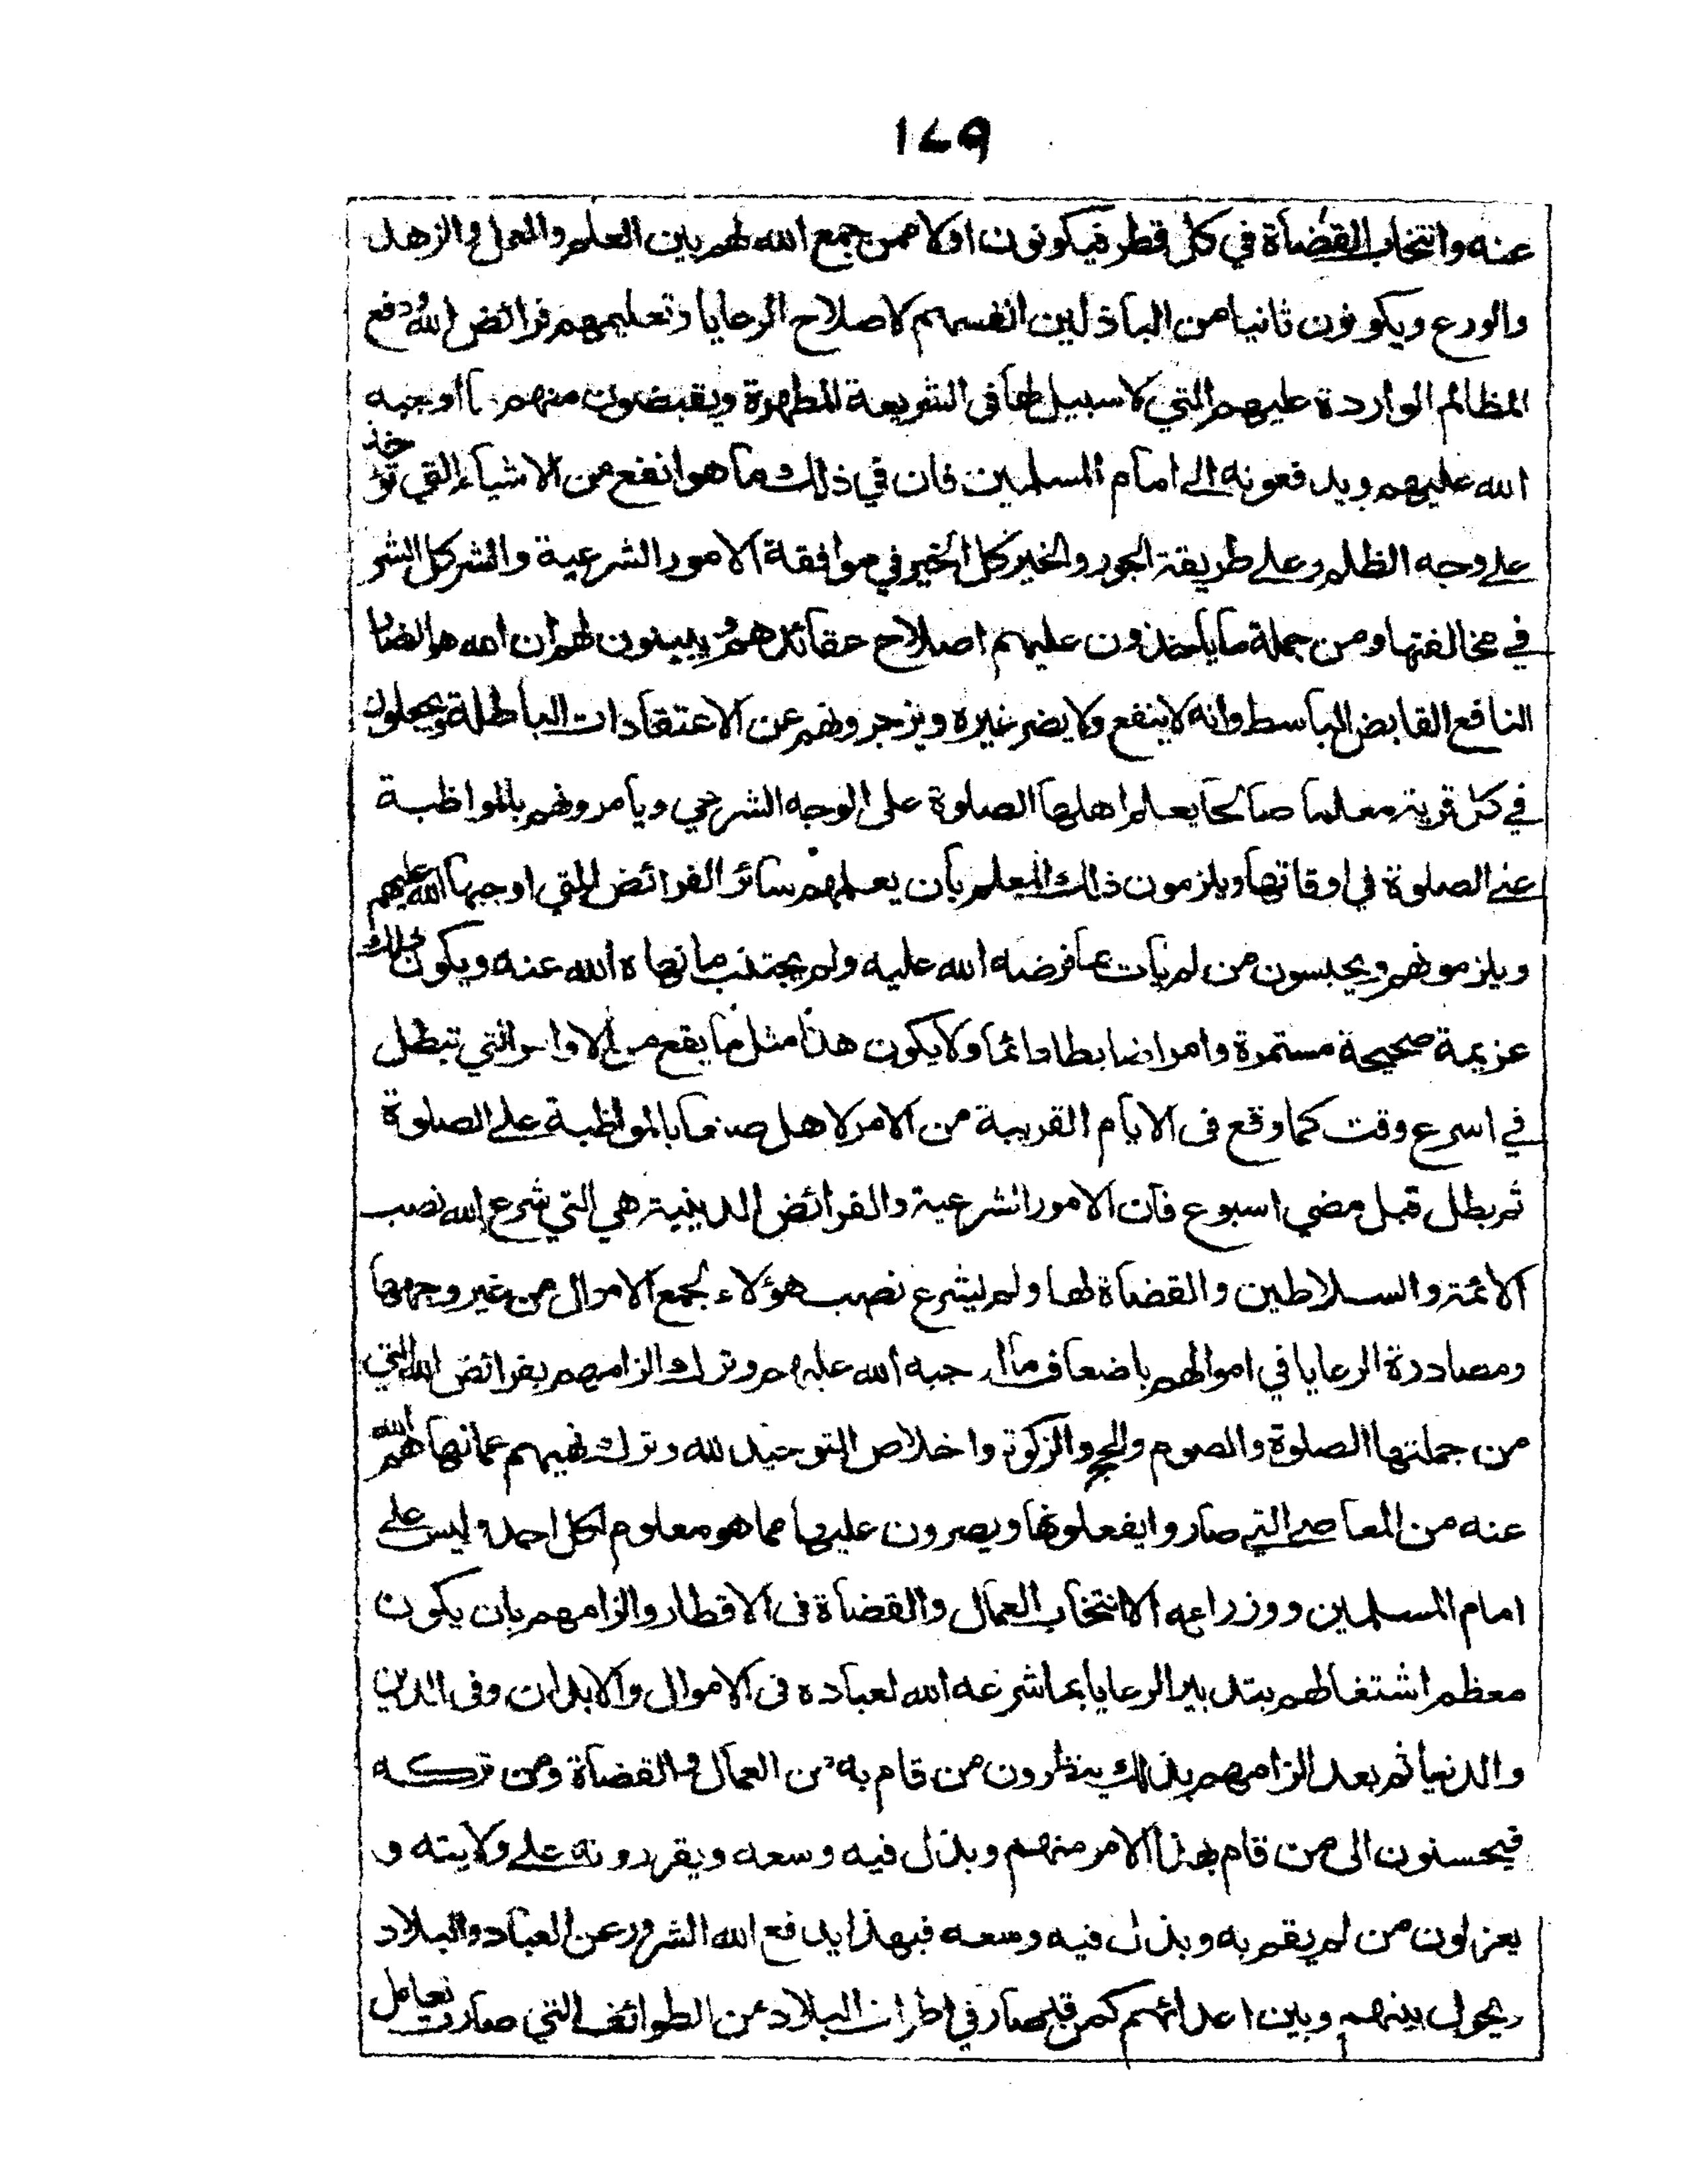 ١٤٩
عنه وانتخاب القضاة في كل قطر فيكونون اولا ممن جمع الله لهم بين العلم والعمل والزهد
والورع ويكونون ثانيا من الباذلين انفسهم لاصلاح الرعايا وتعليمهم فرائض الله ودفع
المظالم الواردة عليهم التي لا سبيل لها فى الشريعة المطهرة ويقبضون منهم ما اوجبه
الله عليهم ويدفعونه الى امام المسلمين فان في ذلك ما هو انفع من الاشياء التي تؤخذ
على وجه الظلم وعلى طريقة الجور والخير كل الخير في موافقة الامور الشرعية والشر كل الشر
في مخالفتها ومن جملة ما يأخذون عليهم اصلاح عقائدهم ويبينون لهم ان الله هو الضار
النافع القابض الباسط وانه لا ينفع ولا يضر غيره ويزجرونهم عن الاعتقادات الباطلة ويجعلون
في كل قرية معلما صالحا يعلم اهلها الصلوة على الوجه الشرعي ويأمرونهم بالمواظبة
على الصلوة في اوقاتها ويلزمون ذلك المعلم بأن يعلمهم سائر الفرائض التي اوجبها الله عليهم
ويلزمونهم ويحبسون من لم يأت بما فرضه الله عليه ولم يجتنب ما نهاه الله عنه ويكون ذلك
عزيمة صحيحة مستمرة وامرا ضابطا دائما ولا يكون هذا مثل ما يقع من الاوامر التي تبطل
في اسرع وقت كما وقع فى الايام القريبة من الامر لاهل صنعا بالمواظبة على الصلوة
ثم بطل قبل مضي اسبوع فان الامور الشرعية والفرائض الدينية هي التي شرع الله نصب
الأئمة والسلاطين والقضاة لها ولم يشرع نصب هؤلاء لجمع الاموال من غير وجهها
ومصادرة الرعايا في اموالهم باضعاف ما اوجبه الله عليهم وترك الزامهم بفرائض الله التي
من جملتها الصلوة والصوم والحج والزكوة واخلاص التوحيد لله وترك نهيهم عما نهاهم الله
عنه من المعاصي التي صاروا يفعلونها ويصرون عليها مما هو معلوم لكل احد وليس على
امام المسلمين ووزراءه الا انتخاب العمال والقضاة فى الاقطار والزامهم بان يكون
معظم اشتغالهم بتدبير الرعايا بما شرعه الله لعباده فى الاموال والابدان وفى الدين
والدنيا ثم بعد الزامهم بذلك ينظرون من قام به من العمال والقضاة ومن تركه
فيحسنون الى من قام بهذا الامر منهم وبذل فيه وسعه ويقررونه على ولايته و
يعزلون من لم يقم به وبذل فيه وسعه فبهذا يدفع الله الشرور عن العباد والبلاد
ويحول بينهم وبين اعدائهم كمن قد صار في اطراف البلاد من الطوائف التي صارت تعامل